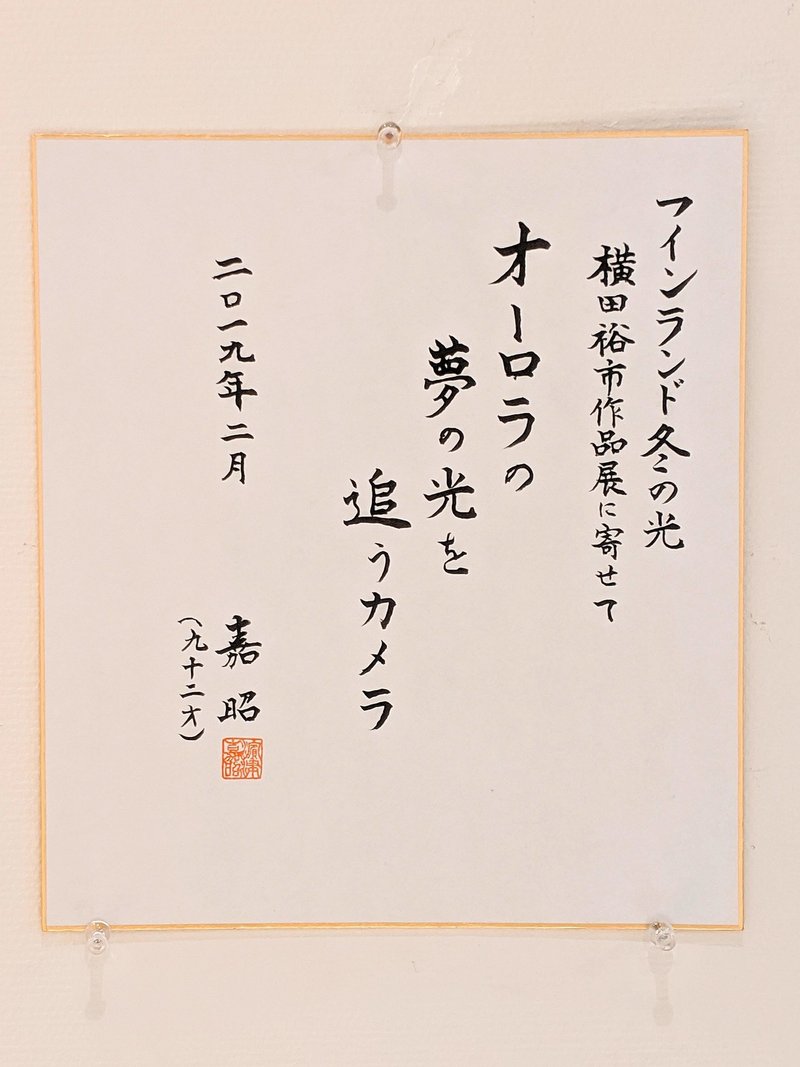 フィンランド冬の光
横田裕市作品展に寄せて
オーロラの
夢の光を
追うカメラ
二〇一九年二月
嘉昭
(九十二才)